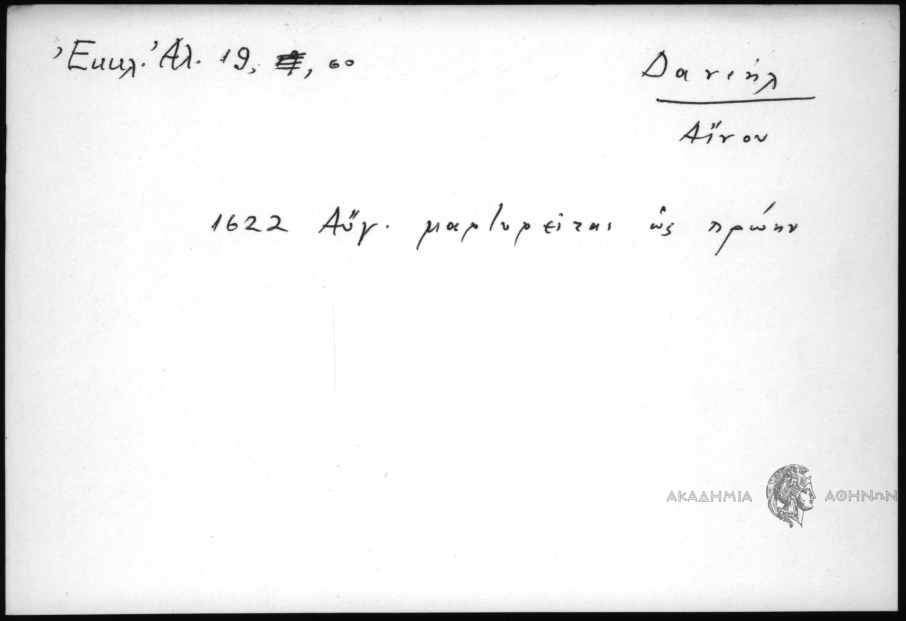 Ἐκκλ. Ἀλ. 19, , 60
Δανιήλ
Αἴνου
1622 Αὔγ. μαρτυρεῖται ὡς πρώην
ΑΚΑΔΗΜΙΑ ΑΘΗΝΩΝ